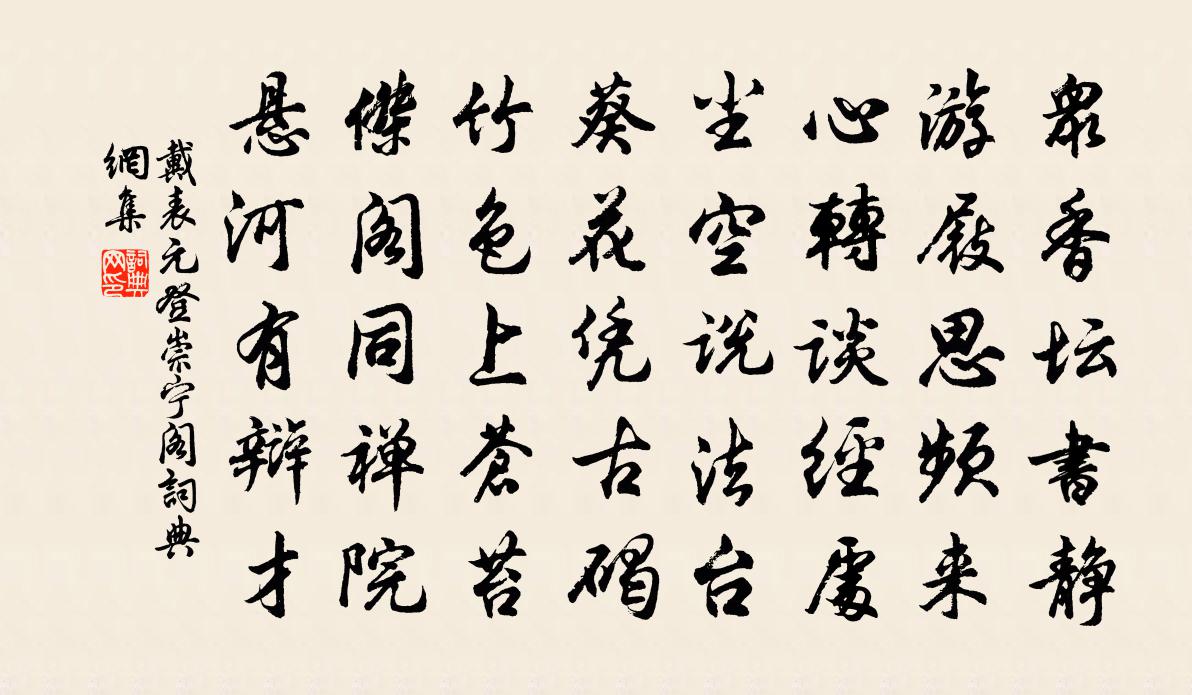 眾香坛書静
游屐思频来
心轉談經處
坐空説法台
葵花凭古碣
竹色上蒼苔
傑阁同禅院
悬河有辯才
戴表元登崇宁阁詞典
網集
詞典网印